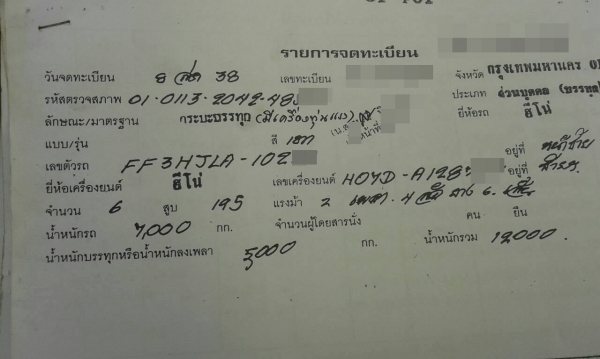 รายการจดทะเบียน
วันจดทะเบียน 8 38 เลขทะเบียน จังหวัด กรุงเทพมหานคร
รหัสตรวจสภาพ 01-0113-2042-48 ประเภท ส่วนบุคคล (บรรทุก)
ลักษณะ/มาตรฐาน กระบะบรรทุก (มีเครื่องทุ่นแรง) ยี่ห้อรถ ฮีโน่
แบบ/รุ่น สี เทา
เลขตัวรถ FF3HJLA-102 อยู่ที่
ยี่ห้อเครื่องยนต์ ฮีโน่ เลขเครื่องยนต์ H07D-A128 อยู่ที่
จำนวน 6 สูบ 195 แรงม้า 2 เพลา 4 ล้อ ยาง 6 เส้น
น้ำหนักรถ 7,000 กก. จำนวนผู้โดยสารนั่ง คน ยืน
น้ำหนักบรรทุกหรือน้ำหนักลงเพลา 5,000 กก. น้ำหนักรวม 12,000.